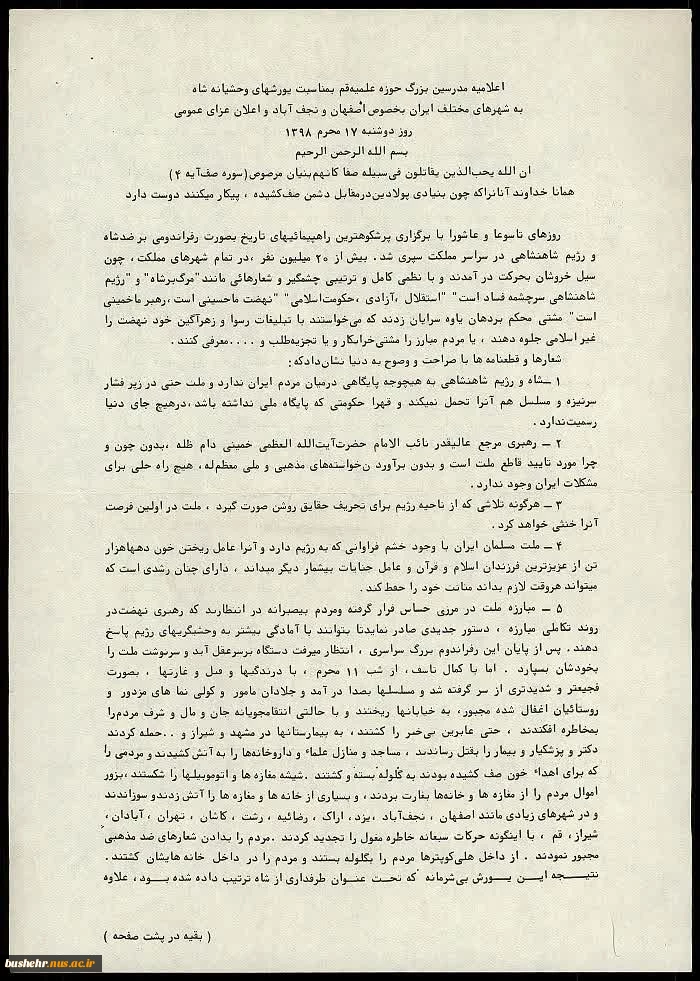 اعلامیه مدرسین بزرگ حوزه علمیه‌قم بمناسبت یورشهای وحشیانه شاه
به شهرهای مختلف ایران بخصوص اصفهان و نجف آباد و اعلان عزای عمومی
روز دوشنبه ۱۷ محرم ۱۳۹۸
بسم الله الرحمن الرحیم
ان الله یحب‌الذین یقاتلون فی‌سبیله صفا کانهم‌بنیان مرصوص (سوره صف‌آیه ۴)
همانا خداوند آنانراکه چون بنیادی پولادین‌درمقابل دشمن صف‌کشیده ، پیکار میکنند دوست دارد
روزهای تاسوعا و عاشورا با برگزاری پرشکوهترین راهپیمائیهای تاریخ بصورت رفراندومی بر ضدشاه
و رژیم شاهنشاهی در سراسر مملکت سپری شد . بیش از ۲۰ میلیون نفر ،در تمام شهرهای مملکت ، چون
سیل خروشان بحرکت در آمدند و با نظمی کامل و ترتیبی چشمگیر و شعارهائی مانند "مرگ‌برشاه" و "رژیم
شاهنشاهی سرچشمه فساد است" "استقلال ،آزادی ،حکومت‌اسلامی" "نهضت ماحسینی است ،رهبر ماخمینی
است" مشتی محکم بردهان یاوه سرایان زدند که می‌خواستند با تبلیغات رسوا و زهرآگین خود نهضت را
غیر اسلامی جلوه دهند ، یا مردم مبارز را مشتی‌خرابکار و یا تجزیه‌طلب و ....معرفی کنند .
شعارها و قطعنامه ها با صراحت و وضوح به دنیا نشان‌دادکه:
۱ ــ‌شاه و رژیم شاهنشاهی به هیچوجه پایگاهی درمیان مردم ایران ندارد و ملت حتی در زیر فشار
سرنیزه و مسلسل هم آنرا تحمل نمیکند و قهرا حکومتی که پایگاه ملی نداشته باشد ،درهیچ جای دنیا
رسمیت‌ندارد .
۲ ــ رهبری مرجع عالیقدر نائب الامام حضرت‌آیت‌الله العظمی خمینی دام ظله ،بدون چون و
چرا مورد تایید قاطع ملت است و بدون برآورد ن‌خواسته‌های مذهبی و ملی معظم‌له، هیچ راه حلی برای
مشکلات ایران وجود ندارد .
۳ ــ هرگونه تلاشی که از ناحیه رژیم برای تحریف حقایق روشن صورت گیرد ، ملت در اولین فرصت
آنرا خنثی خواهد کرد .
۴ ــ ملت مسلمان ایران با وجود خشم فراوانی که به رژیم دارد و آنرا عامل ریختن خون دهها‌هزار
تن از عزیزترین فرزندان اسلام و قرآن و عامل جنایات بیشمار دیگر میداند ، دارای چنان رشدی است که
میتواند هروقت لازم بداند متانت خود را حفظ کند .
۵ ــ مبارزه ملت در مرزی حساس قرار گرفته ومردم بیصبرانه در انتظارند که رهبری نهضت‌در
روند تکاملی مبارزه ، دستور جدیدی صادر نمایدتا بتوانند با آمادگی بیشتر به وحشیگریهای رژیم پاسخ
دهند . پس از پایان این رفراندوم بزرگ سراسری ، انتظار میرفت دستگاه برسرعقل آید و سرنوشت ملت را
بخودشان بسپارد . اما با کمال تاسف، از شب ۱۱ محرم ، با درندگیها و قتل و غارتها ، بصورت
فجیعتر و شدیدتری از سر گرفته شد و مسلسلها بصدا در آمد و جلادان مامور و کولی نما های مزدور و
روستائیان اغفال شده مجبور، به خیابانها ریختند و با حالتی انتقامجویانه جان و مال و شرف مردم‌را
بمخاطره افکندند ، حتی عابرین بی‌خبر را کشتند ، به بیمارستانها در مشهد و شیراز و ..حمله کردند
دکتر و پزشکیار و بیمار را بقتل رساندند ، مساجد و منازل علماء و داروخانه‌ها را به آتش کشیدند و مردمی را
که برای اهداء خون صف کشیده بودند به گلوله بسته و کشتند .شیشه مغازه ها و اتوموبیلها را شکستند ،بزور
اموال مردم را از مغازه ها و خانه‌ها بغارت بردند ، و بسیاری از خانه ها و مغازه ها را آتش زدندو سوزاندند
و در شهرهای زیادی مانند اصفهان ، نجف‌آباد ، یزد، اراک ، رضائیه ، رشت ، کاشان ، تهران ، آبادان ،
شیراز، قم ، با اینگونه حرکات سبعانه خاطره مغول را تجدید کردند .مردم را بدادن شعارهای ضد مذهبی
مجبور نمودند . از داخل هلی‌کوپترها مردم را بگلوله بستند و مردم را در داخل خانه هایشان کشتند .
نتیجه این یورش بی‌شرمانه که تحت عنوان طرفداری از شاه ترتیب داده شده بود ، علاوه
( بقیه در پشت صفحه )
bushehr.nus.ac.ir